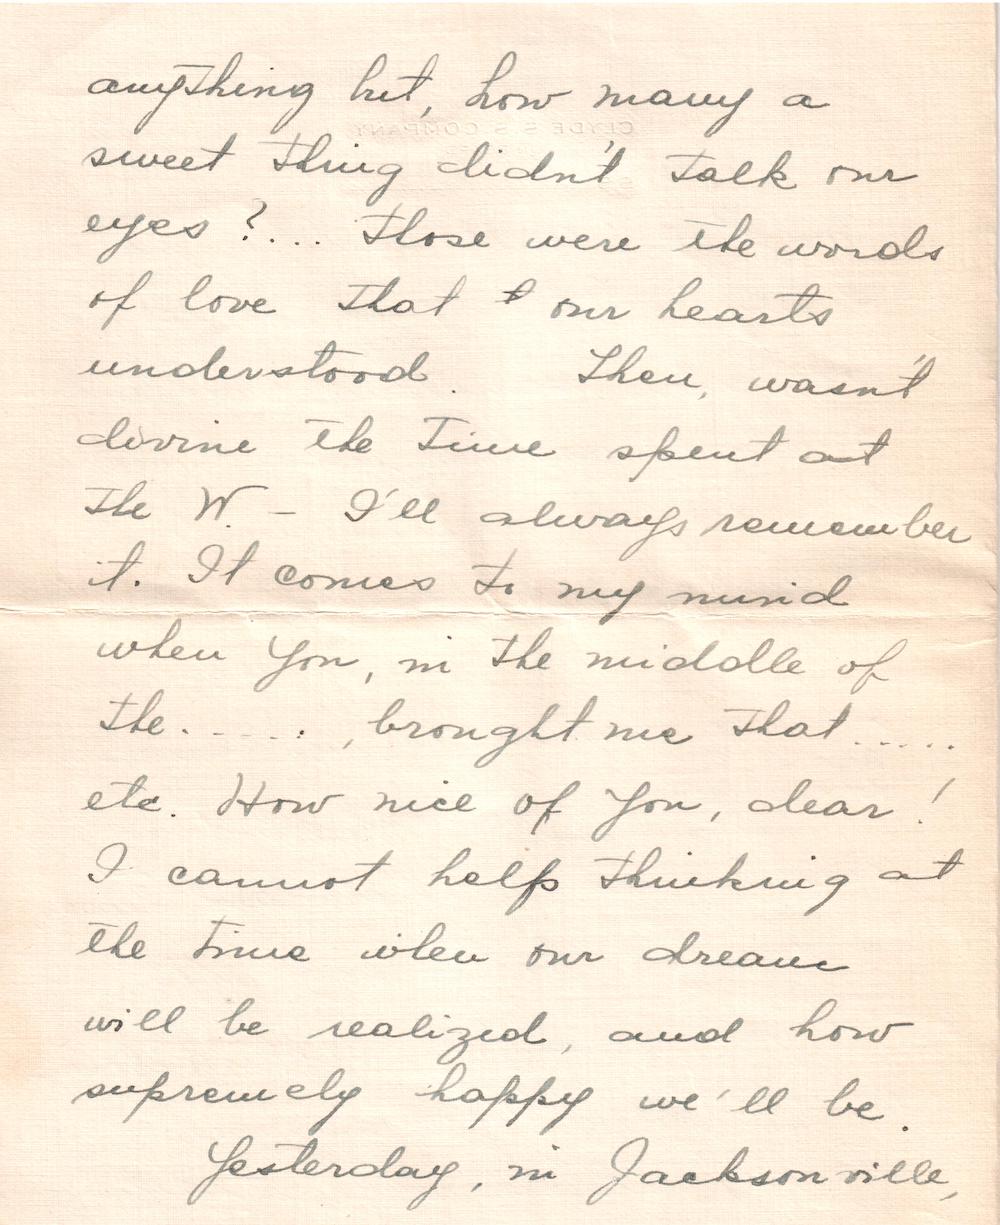 anything but, how many a
sweet thing didn't talk our
eyes ?... Those were the words
of love that our hearts
understood. Then, wasn't
divine the time spent at
the W. - I'll always remember
it. It comes to my mind
when You, in the middle of
the. - - - - . , brought me that.....
etc. How nice of You, dear!
I cannot help thinking at
the time when our dream
will be realized, and how
supremely happy we'll be.
Yesterday, in Jacksonville,